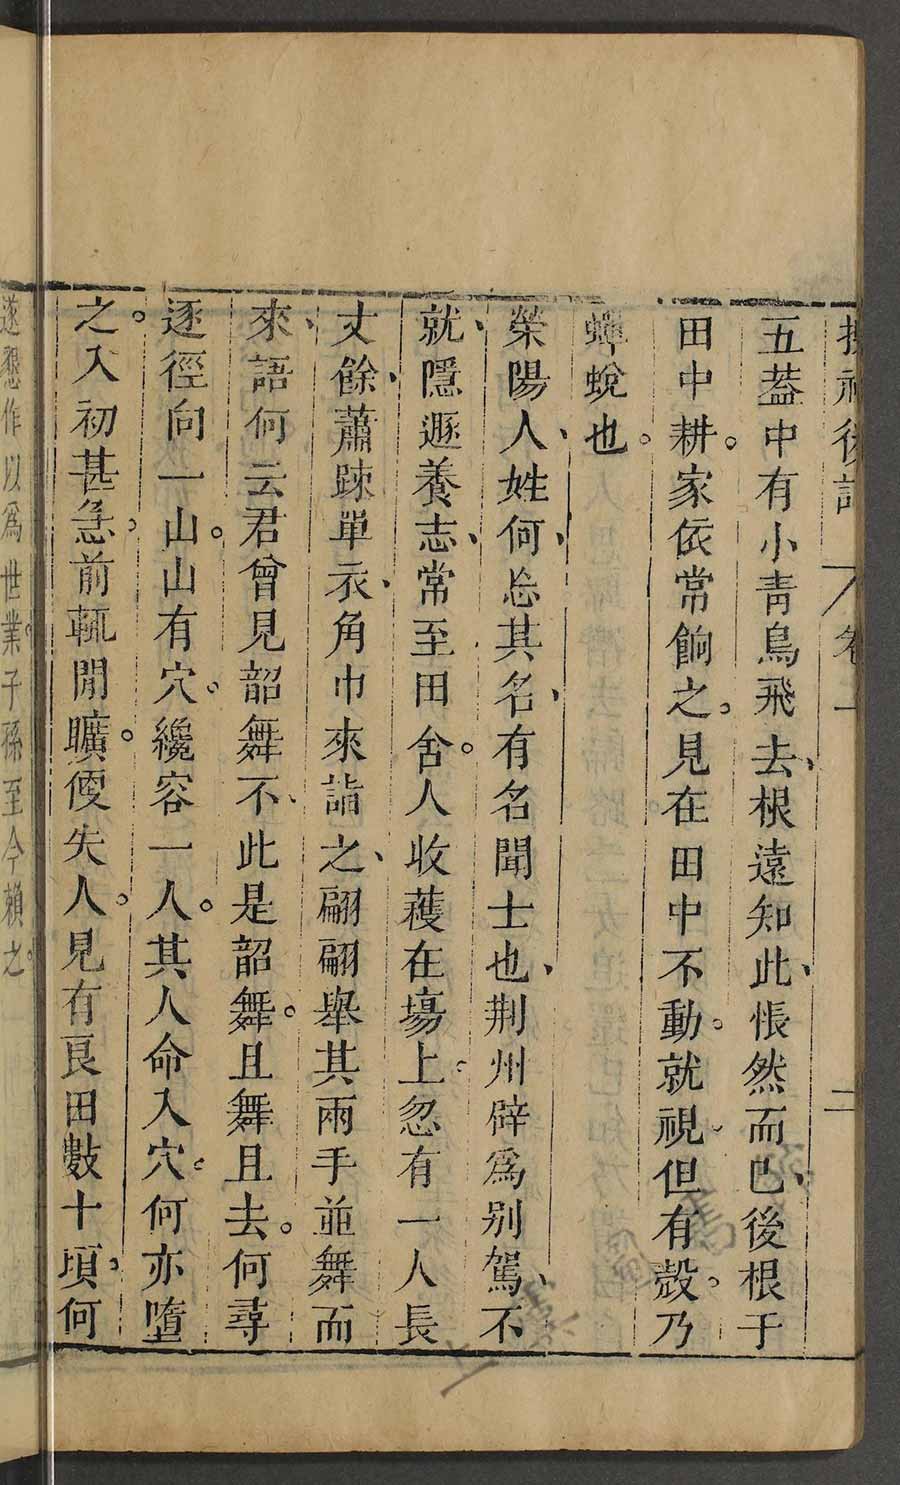 搜神後記 卷一 二
五葢中有小靑鳥飛去根遠知此悵然而已後根于
田中耕家依常餉之見在田中不動就視但有殼乃
蟬蛻也
榮陽人姓何忘其名有名聞士也荆州辟爲别駕不
就隱遯養志常至田舍人收穫在塲上忽有一人長
丈餘蕭踈單衣角巾來詣之翩翩舉其兩手並舞而
來語何云君曾見韶舞不此是韶舞且舞且去何尋
逐徑向一山山有穴纔容一人其人命入穴何亦墮
之入初甚急前輒閒曠便失人見有良田數十頃何
遂懇作以爲世業子孫至今賴之